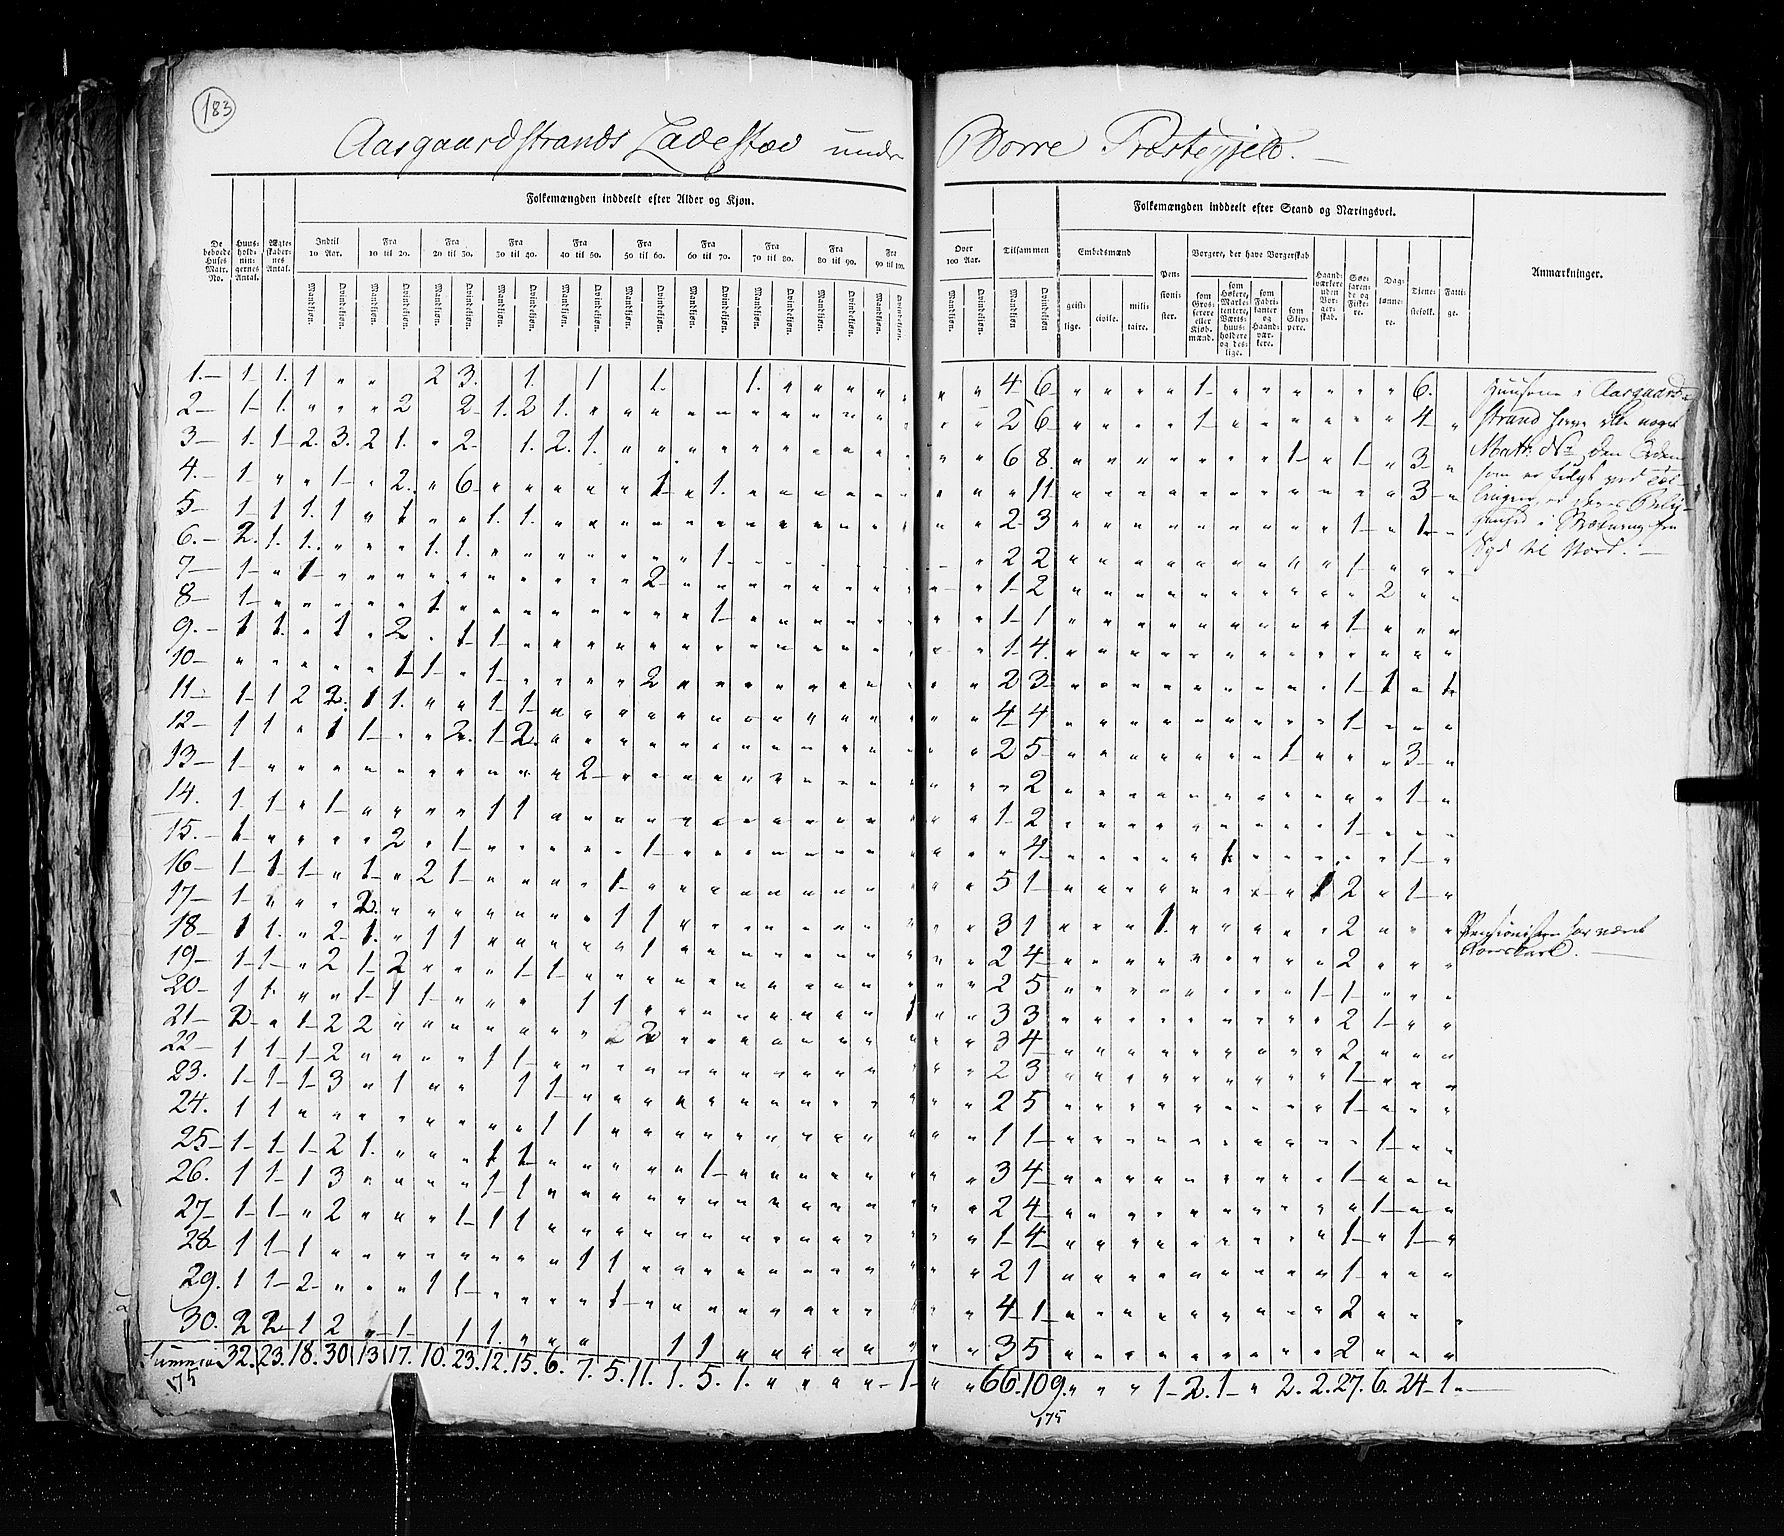 183
Aasgaardstrands Ladested under Borre Præstegjeld.
Folkemængden inddeelt efter Alder og Kjøn.
Folkemængden inddeelt efter Stand og Næringsvei.
De beboede Huses Matr. No.
Huusholdningernes Antal.
Ægteskabernes Antal.
Indtil 10 Aar.
Fra 10 til 20.
Fra 20 til 30.
Fra 30 til 40.
Fra 40 til 50.
Fra 50 til 60.
Fra 60 til 70.
Fra 70 til 80.
Fra 80 til 90.
Fra 90 til 100.
Over 100 Aar.
Tilsammen
Mandkjøn. Qvindekjøn.
Embedsmænd
geistlige. civile. militaire.
Pensionister.
Borgere, der have Borgerskab
som Grosserere eller Kjøbmænd.
som Høkere, Marketentere, Værtshuusholdere og deslige.
som Fabrikanter og Haandværkere.
som Skippere.
Haandværkere uden Borgerskab.
Søefarende og Fiskere.
Daglønnere.
Tjenestefolk.
Fattige.
Anmærkninger.
1.— 1 1. 1 " " 2 3. 1. 1 1. 1. 4 6 1 6.
2— 1 1. " " " 2 2 1. 2 1. 2 6 1 4
3— 1. 1 2. 3. 2 1. " 2 1. 2. 1. 6 8 1 1 3
4.— 1 " " 1 " 2. " 6 1 1. " 11 3
5— 1 1 1. 1 " 1 " " 1. 1. 2 3 1 1
6.— 2. 1. 1. 1. 1. 1 2 2 1
7— 1 " 1 2 1 2 2
8— 1 1 1 1 1 1
9.— 1 1. " 1 " 2 " 1 1 1 4.
10— 1 1 1 2 2 3 1 1 1
11— 1 1 2 2. 1 1. " " 1 1 4 4 1
12— 1 1 " 1 1 " " 2. 1 2. 2 5 1 3
13— 1 2 " 2 1
14. 1 1 " 1 1 1 1 2 1
15.— 1 2 " 1 1 " 4 1 1
16— 1 1 1 " 1 " 2 1 1 5 1 1 2 1
17— 1 2. 1 1 3 1 1. 2
18— 1 1. " 2 1. " 1 1 1 2 4 2
19— 1 1 " 2 1 2 1 1 2 5 1 1
20— 1 1. " " 1 1 1 1 1 3 3 2 1
21— 2 " 1 2 2 2 2 1 3 4 2
22— 1 1 1 2 1 1 2 3 1
23. 1 1 1 3 " 1 1 1 2 5 1
24. 1 1 1 1 1 1 1
25— 1 1 1 2 1. 1 1 1 3 4 1
26. 1 1 1 3 1 1 2 4 1
27— 1 1 " 2 1 1 1 1 4 1 1
28— 1 1 1 1 1 2 1 1
29. 1 1 2 1 1 1 4 1 2
30. 2 2 1 2 " 1 1 1. 1 1 3 5 2
Summa 32. 23. 18. 30 13 17. 10. 23. 12. 15. 6. 7. 5. 11. 1. 5. 1. " " " " 1 " " 66. 109. " " " 1 2. 1 " 2. 2. 27. 6. 24 1
175
175
Huusene i Aasgaard-
strand have ikke noget
Matr. No den Orden
som er fulgt ved
Syd til Nord.
Pensionisten har været